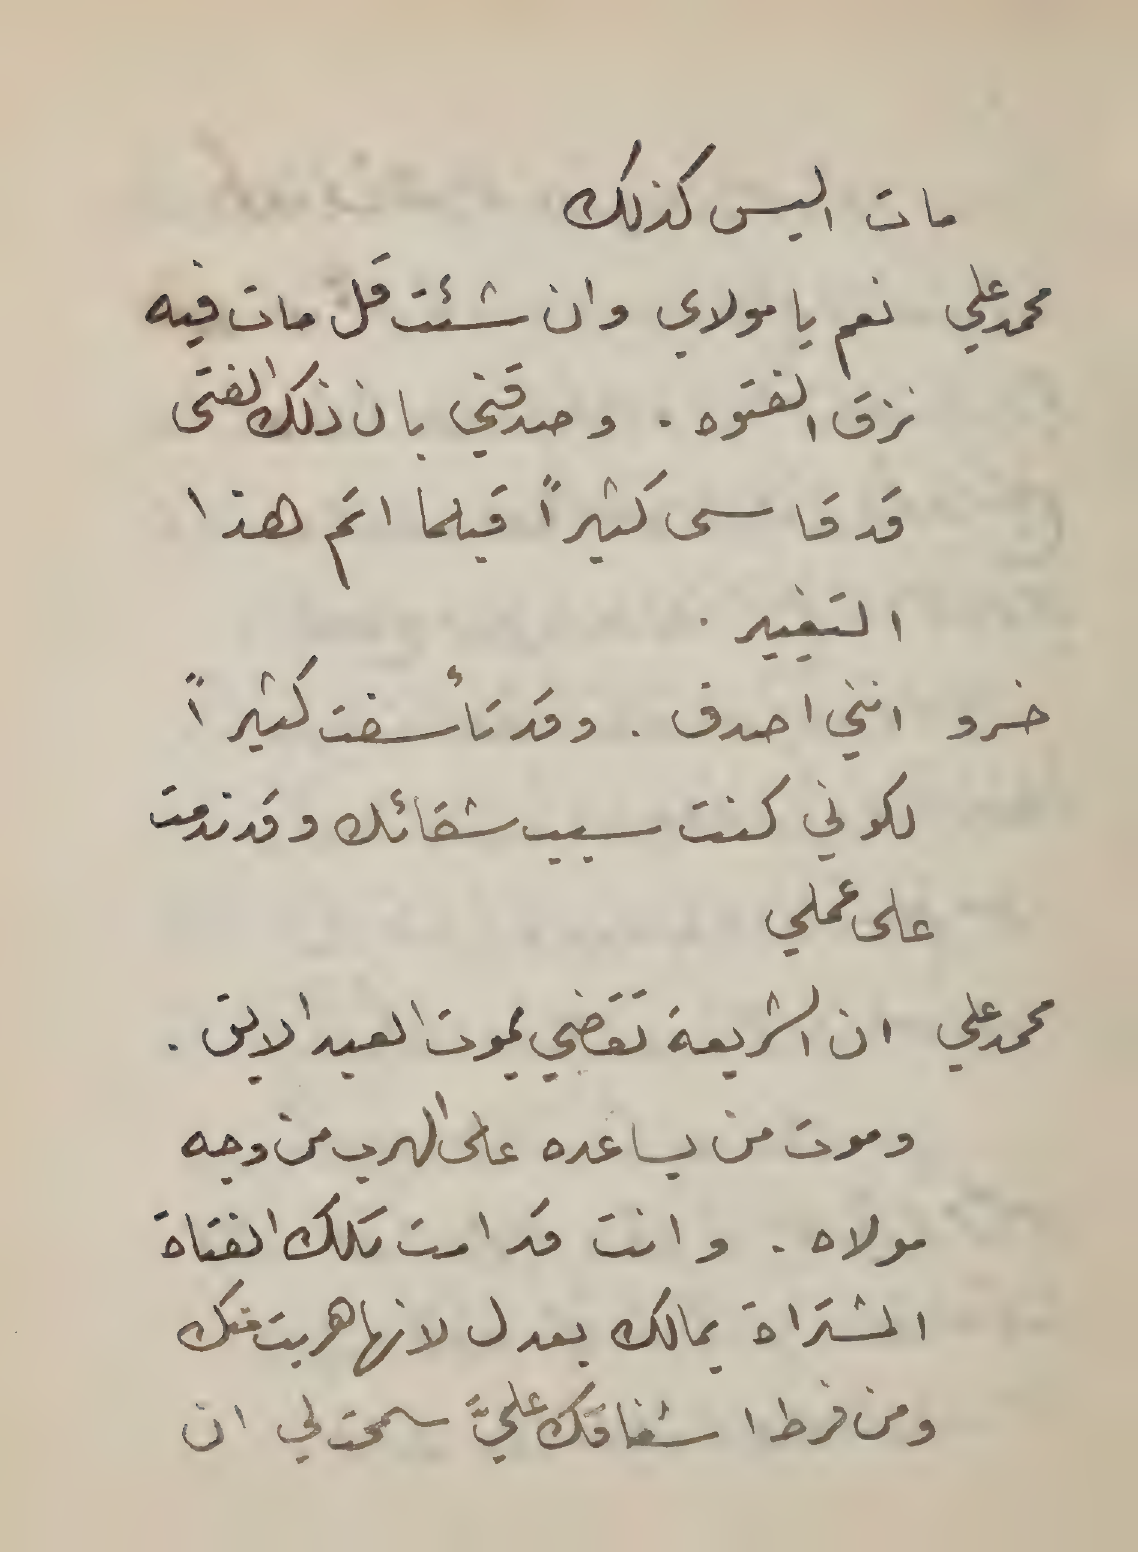 مات اليس كذلك
محمد علي نعم يا مولاي وان شئت قل مات فيه
نزق الفتوه . وصدقني بان ذلك الفتى
قد قاسى كثيراً قبلما اتم هذا
التغيير .
خسرو انني اصدق . وقد تأسفت كثيراً
لكوني كنت سبب شقائك وقد ندمت
على عملي
محمد علي ان الشريعة تقضي بموت العبد الابق .
وموت من يساعده على الهرب من وجه
مولاه . وانت قد امت تلك الفتاة
المشتراة بمالك بعدل لانها هربت منك
ومن فرط اشفاقك عليَّ سمحت لي ان